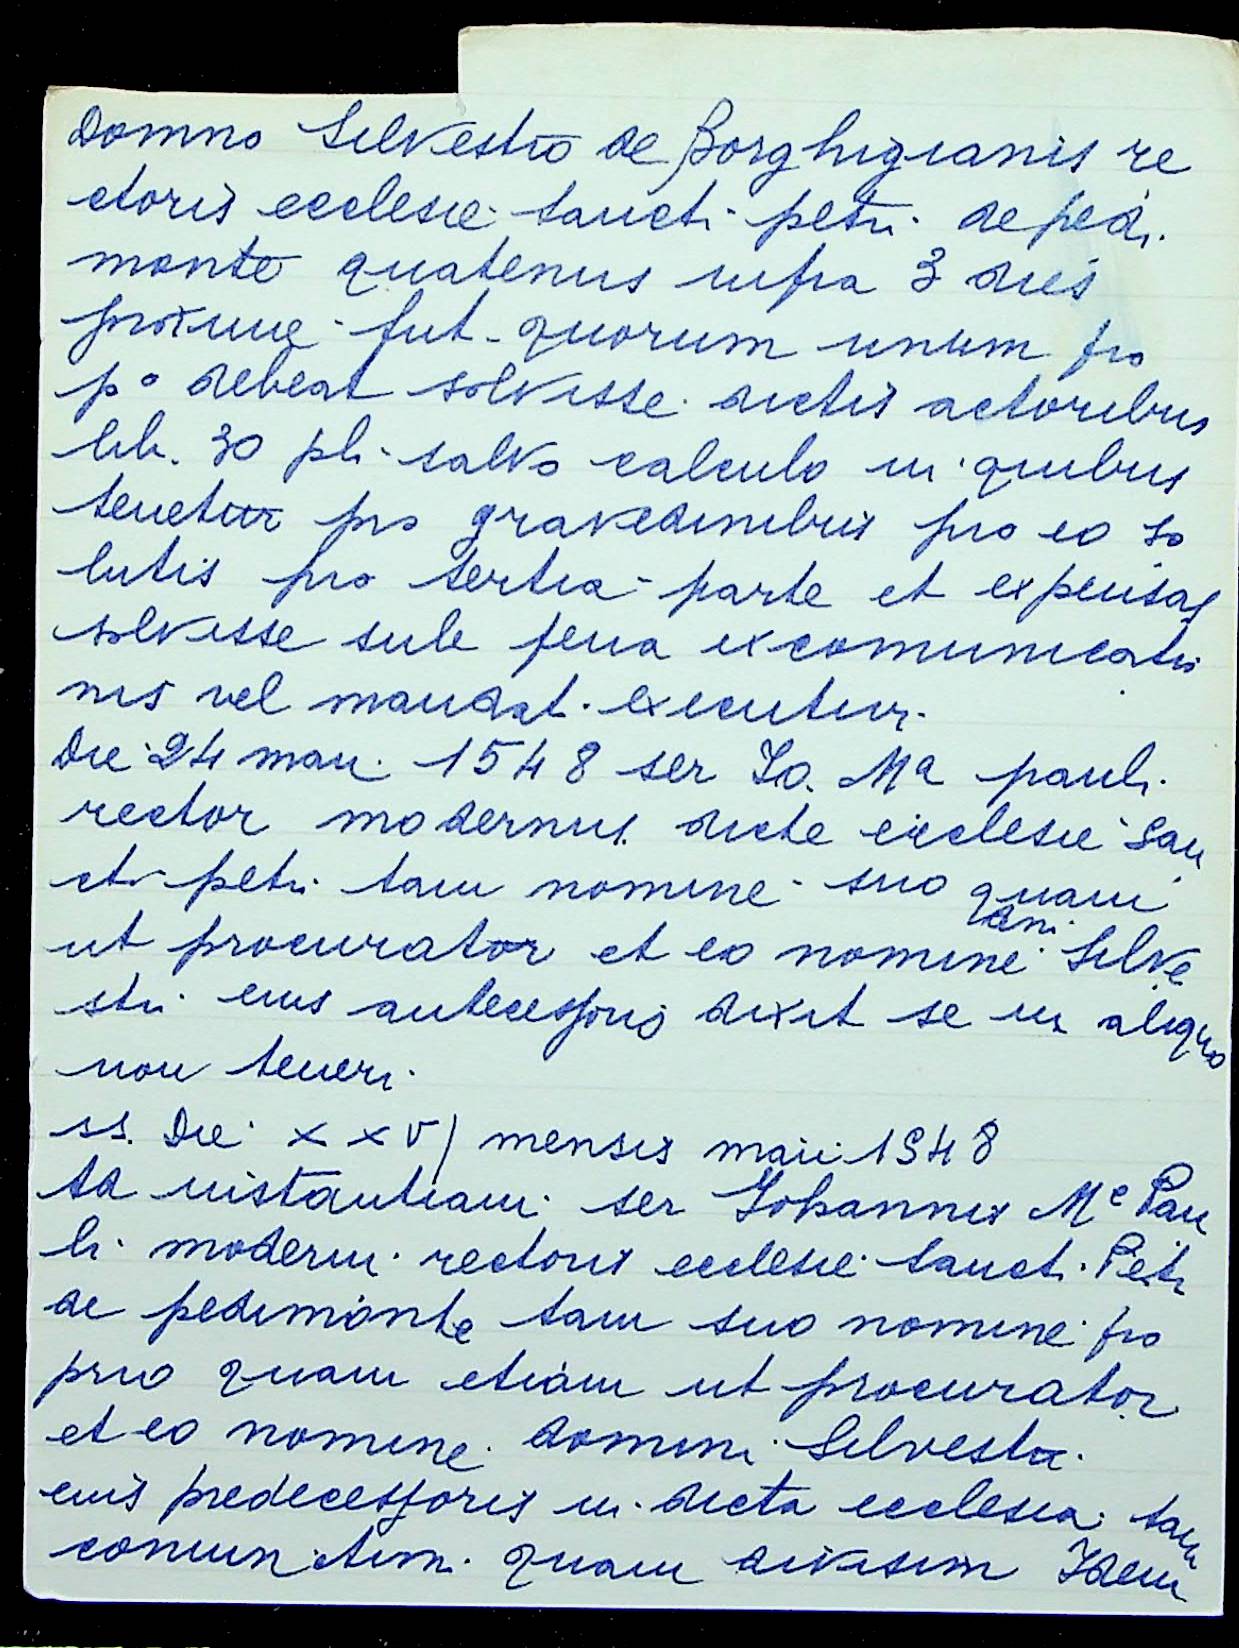 Domno Silvestro de Borghigianis re
ctoris ecclesie sancti petri de pedi
monte quatenus infra 3 dies
proxime fut. quorum unum pro
p° debeat solvisse dictis actoribus
lib. 30 pli. salvo calculo in quibus
tenetur pro gravedinibus pro eo so
lutis pro tertia parte et expensas
solvisse sub pena excomunicatio
nis vel mandat. executivi.
Die 24 maii 1548 ser Jo. Ma pauli
rector modernus dicte ecclesie San
cti petri tam nomine suo quam
ut procurator et eo nomine dni Silve
stri eius antecessoris dixit se in aliquo
non teneri.
ss. Die xxv/ mensis maii 1548
Ad instantiam ser Johannis Me Pau
li moderni rectoris ecclesie sancti Petri
de pedimonte tam suo nomine pro
prio quam etiam ut procurator
et eo nomine domini Silvestri
eius predecessoris in dicta ecclesia tam
coniunctim quam divisim Idem